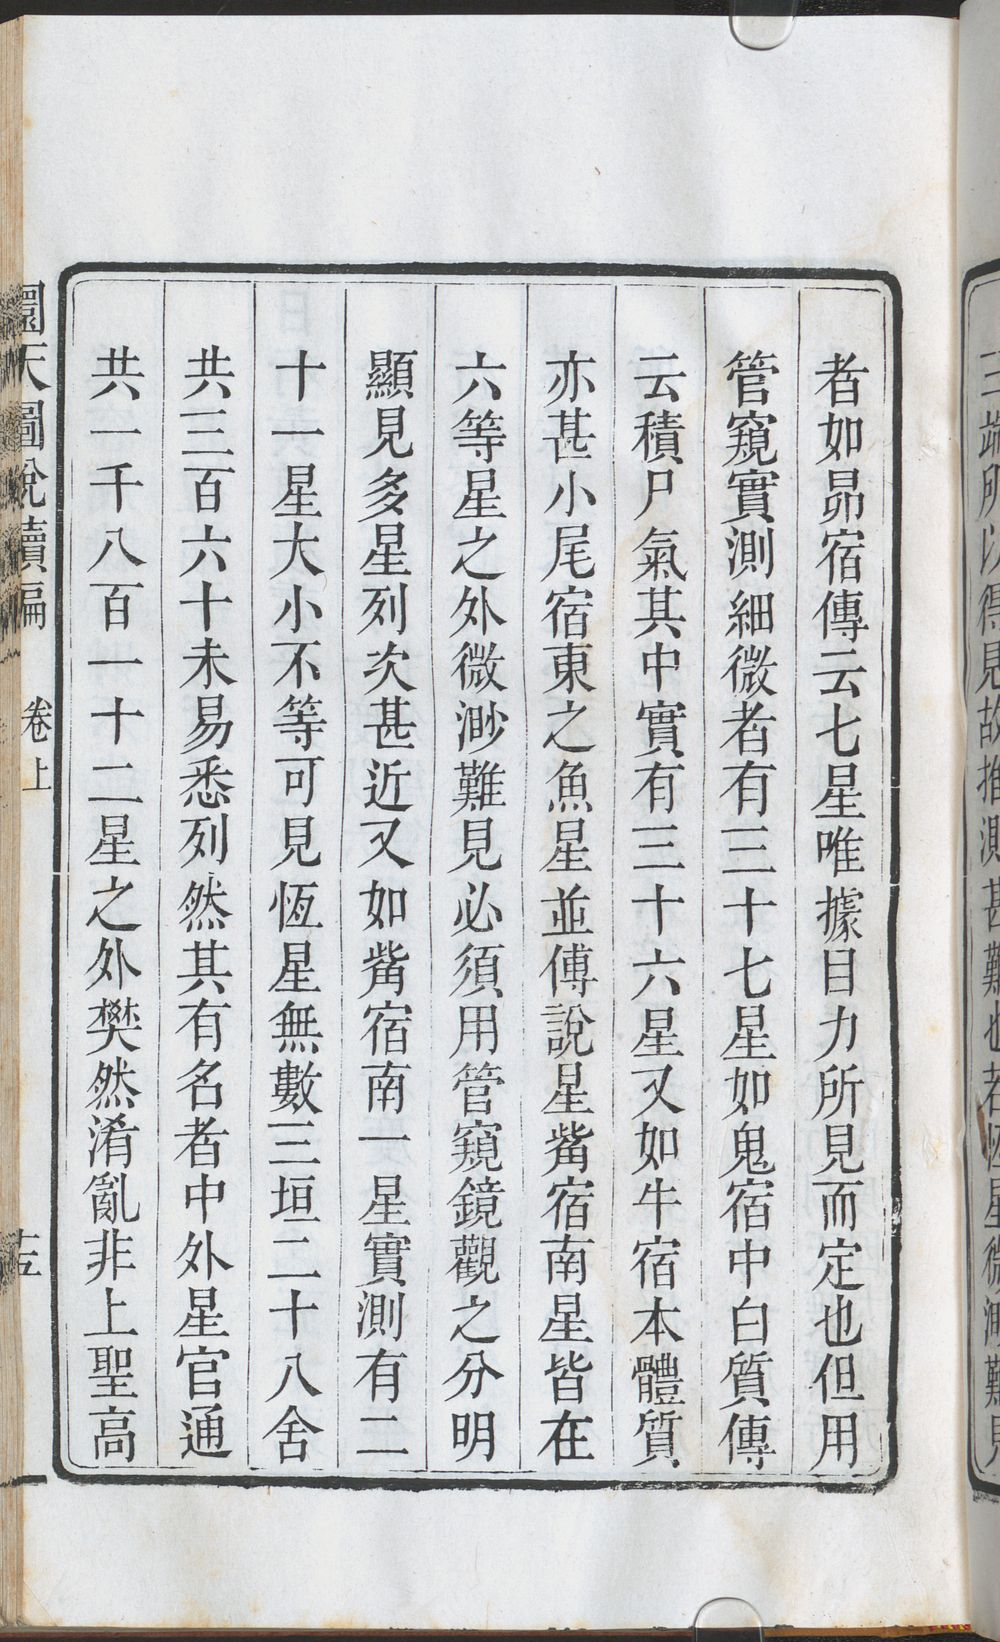 者如昴宿傳云七星唯據目力所見而定也但用
管窺實測細微者有三十七星如鬼宿中白質傳
云積尸氣其中實有三十六星又如牛宿本體質
亦甚小尾宿東之魚星並傅說星觜宿南星皆在
六等星之外微渺難見必須用管窺鏡觀之分明
顯見多星列次甚近又如觜宿南一星實測有二
十一星大小不等可見恆星無數三垣二十八舍
共三百六十未易悉列然其有名者中外星官通
共一千八百一十二星之外樊然淆亂非上聖高
圜天圖說續編 卷上